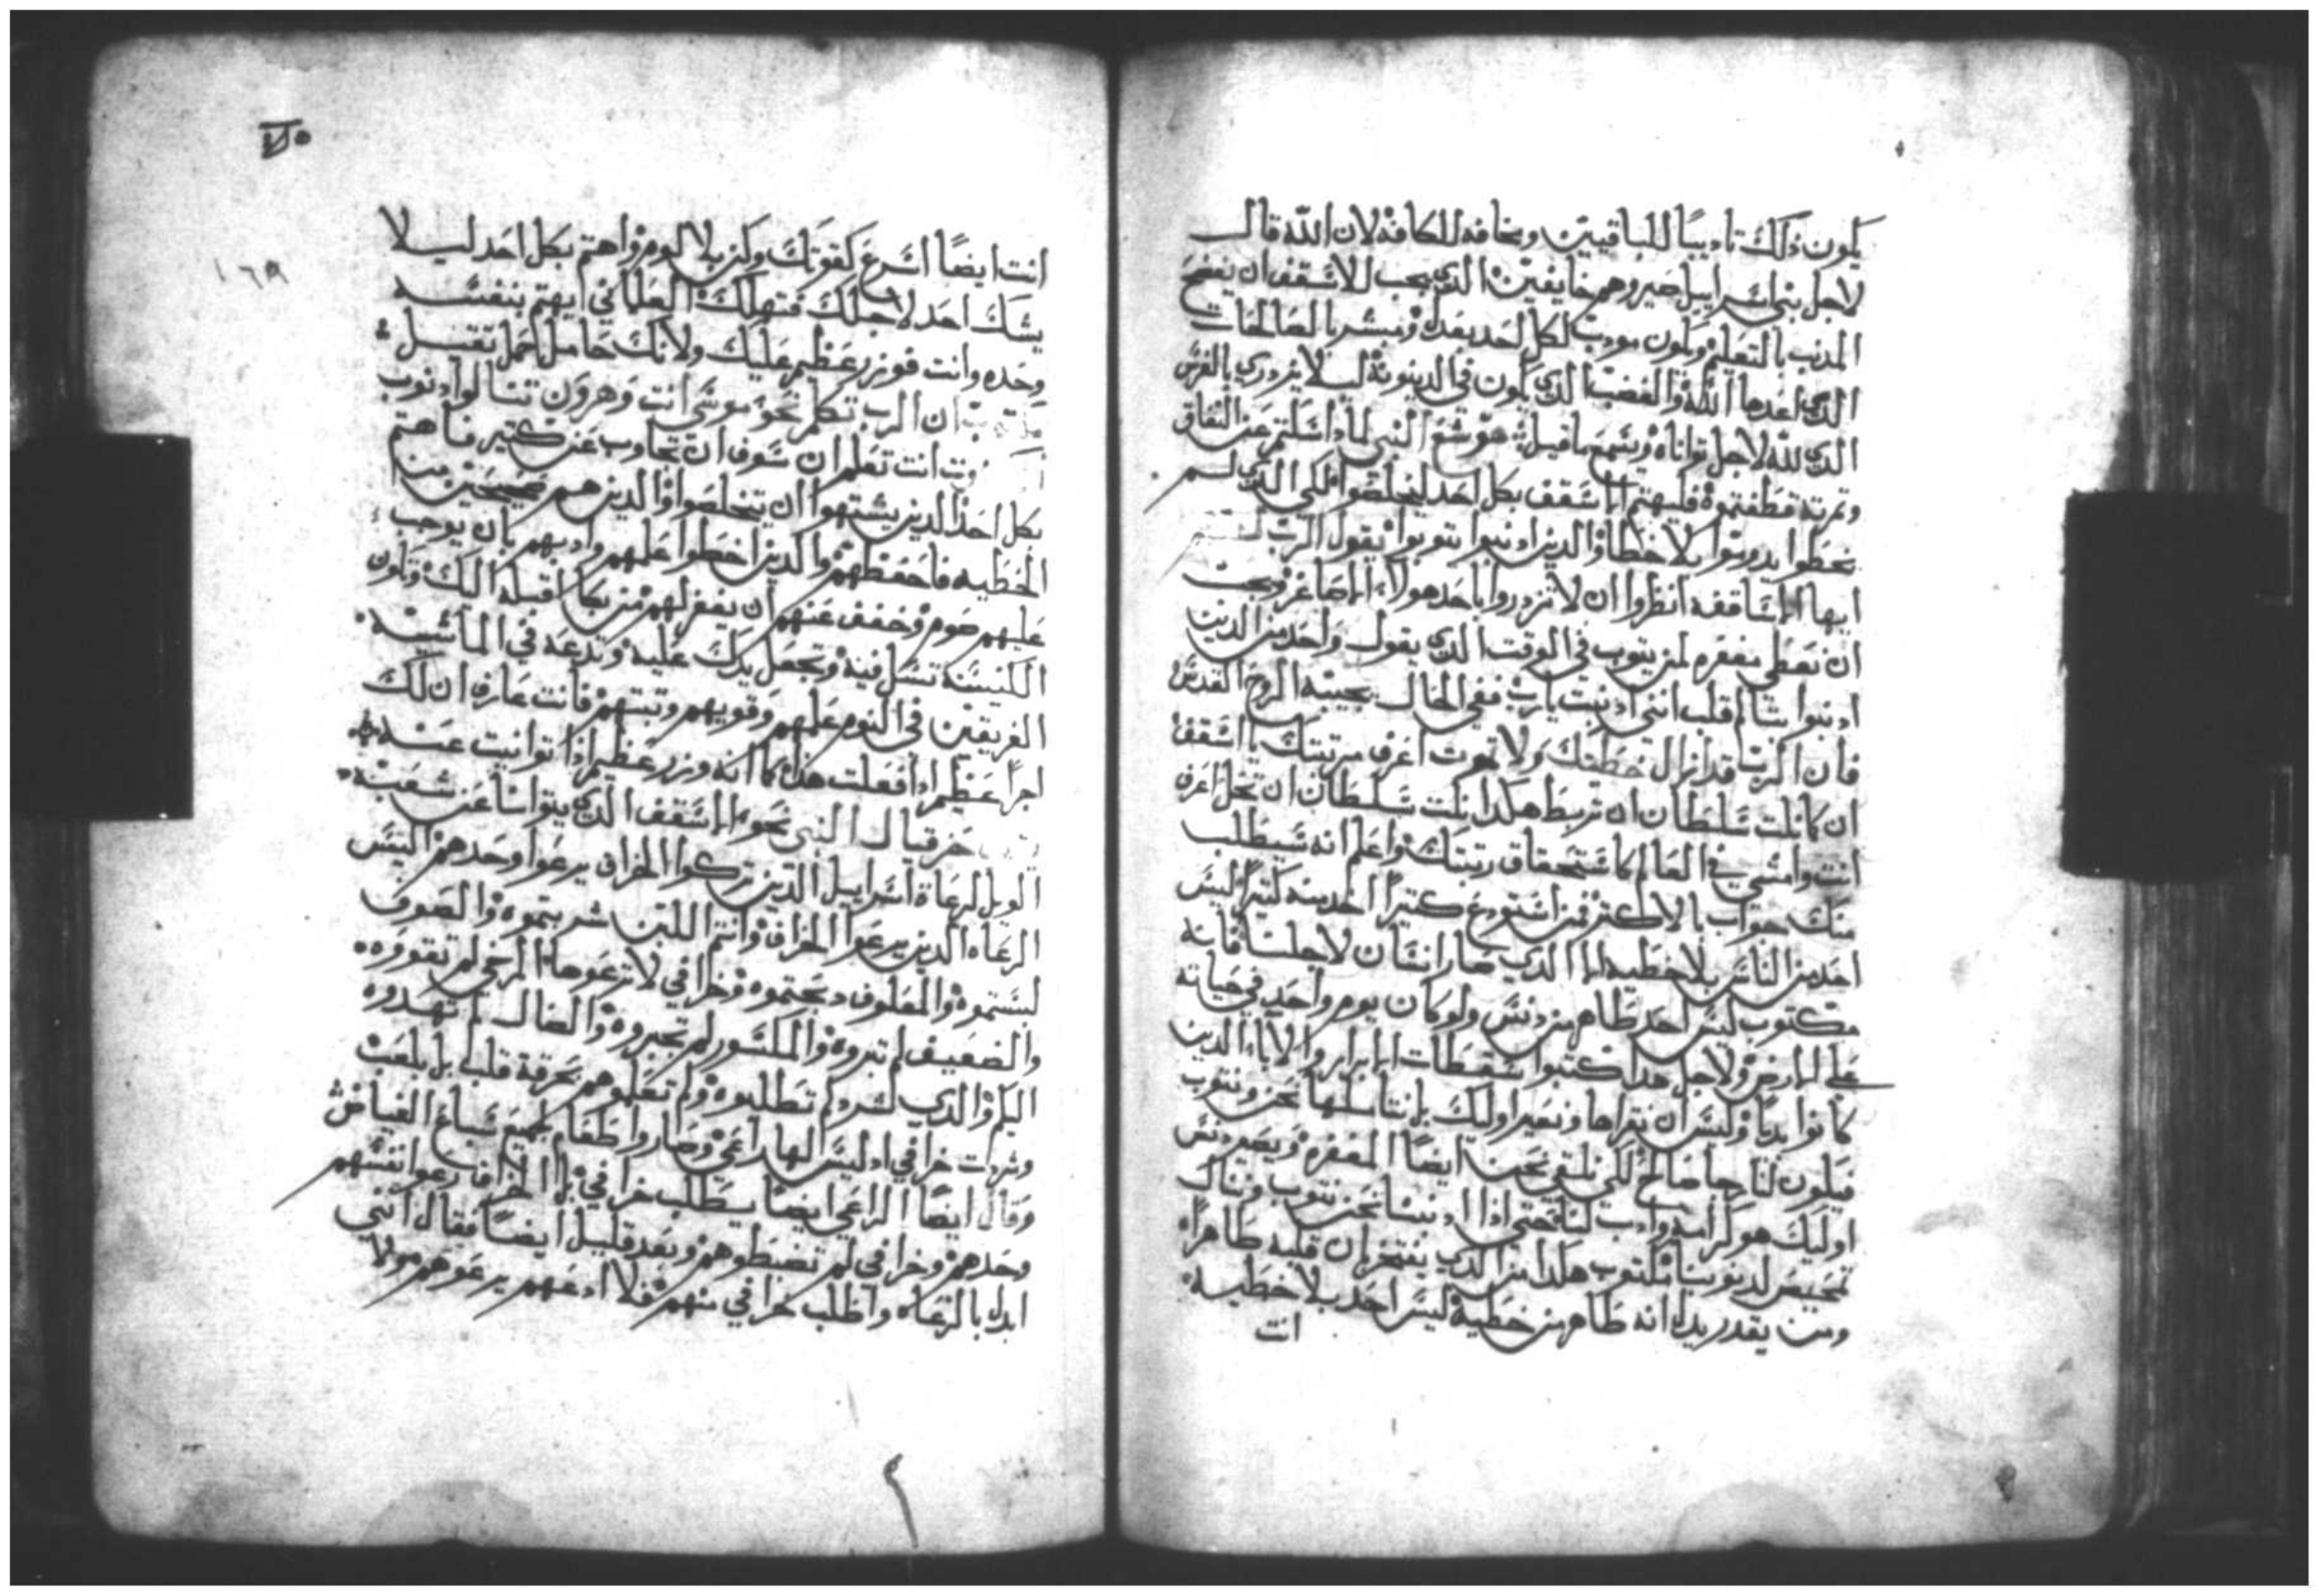 يكون ذلك تاديبًا للباقيين ومخافه للكافة لان الله قال
لاجل بني اسراييل صيروهم خايفين الدي يجب للاسقف ان يفضح
المدنب بالتعليم ويكون مودب لكل احد بعدل ويبشر بالصالحات
الدي اعدها الله والغضب الدي يكون في الدينونة ليلا يزدري بالغرس
الدي لله لاجل تواناه ويسمع ما قيل هوشع النبي لمادا سكتم عن النفاق
وتمرته قطفتموه فليهتم الاسقف بكل احد ليخلصوا لكي الدي لم
يخطوا يدوموا بلا خطا والدين ادنبوا يتوبوا يقول الرب
ايها الاساقفه انظروا ان لا تزدروا باحد هولاء الاصاغر ويجب
ان تعطي مغفره لمن يتوب في الوقت الدي يقول واحد من الدين
ادنبوا قلب انني ادنبت يارب ففي الحال يجيبه الروح القدس
فان الرب قد ازال خطيتك ولا تموت اعرف مرتبتك يا اسقف
ان كانلت سلطان ان تربط هكدا نلت سلطان ان تحل اعرف
انت وامشي في العالم كاستحقاق رتبتك واعلم انه سيطلب
منك جواب بالاكتر فمن استودع كتيرًا كتيرًا ليس
احد من الناس بلا خطيه الا الدي صار انسان لاجلنا فانه
مكتوب ليس احد طاهر من دنس ولو كان يوم واحد في حياته
علي الارض ولاجل هدا كتبوا سقطات الابرار والاباء الدين
كانوا بديًا وليس ان نقراها ونصير اوليك بل نتاملها نحن ونتوب
فيكون لنا رجا صالح لكي نلتقي نحن ايضًا المغفره ويصير دنس
اوليك هو كرامه وادب لنا حتي ادا ادنبنا نحن نتوب وننال
تمحيص لدنوبنا مكتوب هكدا من الدي يفتخر ان قلبه طاهرًا
ومن يقدر يدل انه طاهر من خطية ليس احد بلا خطيه
انت
١٦٩
انت ايضًا اسرع كقوتك وكن بلا لوم واهتم بكل احد ليلا
يشك احد لاجلك فتهلك العلماني يهتم بنفسه
وحده وانت فوزر عظيم عليك ولانك حامل احمل تقتل
ان الرب تكلم نحو موسى انت وهرون تنالوا دنوب
انت تعلم ان سوف ان تجاوب عن كتير فاهتم
بكل احد الدين يشتهوا ان يتخلصوا والدين هم صحيحين من
الخطيه فاحفظهم والدين اخطوا علمهم وادبهم بان يوجب
عليهم صوم وخفف عنهم ان يغفر لهم من بكا اقبله اليك وتكون
الكنيسه تسل فيه وتجعل يدك عليه وتدعه في الماشيه
الفريقين في النوم علمهم وقويهم وتبتهم فانت عارف ان لك
اجرًا عظيم ادا فعلت هدا كما انه وزر عظيم ادا توانيت عنه
حزقيال النبي نحو الاسقف الدي يتوانا عن شعبه
الويل لرعاة اسراييل الدين تركوا الخراف يرعوا وحدهم اليس
الرعاه الدين يرعوا الخراف وانتم اللبن شربتموه والصوف
لبستموه والمعلوف دبحتموه وخرافي لا ترعوها المرخي لم تقووه
والضعيف لم تبروه والمكسور لم تجبروه والضال لم تهدوه
اليكم والدي لشرد لم تطلبوه ولم تعلموهم بحرقة قلب بل بلعب
وشردت خرافي اد ليس لها راعي وصاروا طعام لجميع سباع الغياض
وقال ايضًا الراعي ايضا يطلب خرافي بل الخراف رعوا نفسهم
وحدهم وخرافي لم تضبطوهم وبعد قليل ايضًا فقال انني
ابدل بالرعاه واطلب خرافي منهم فلا ادعهم يرعوهم هولا